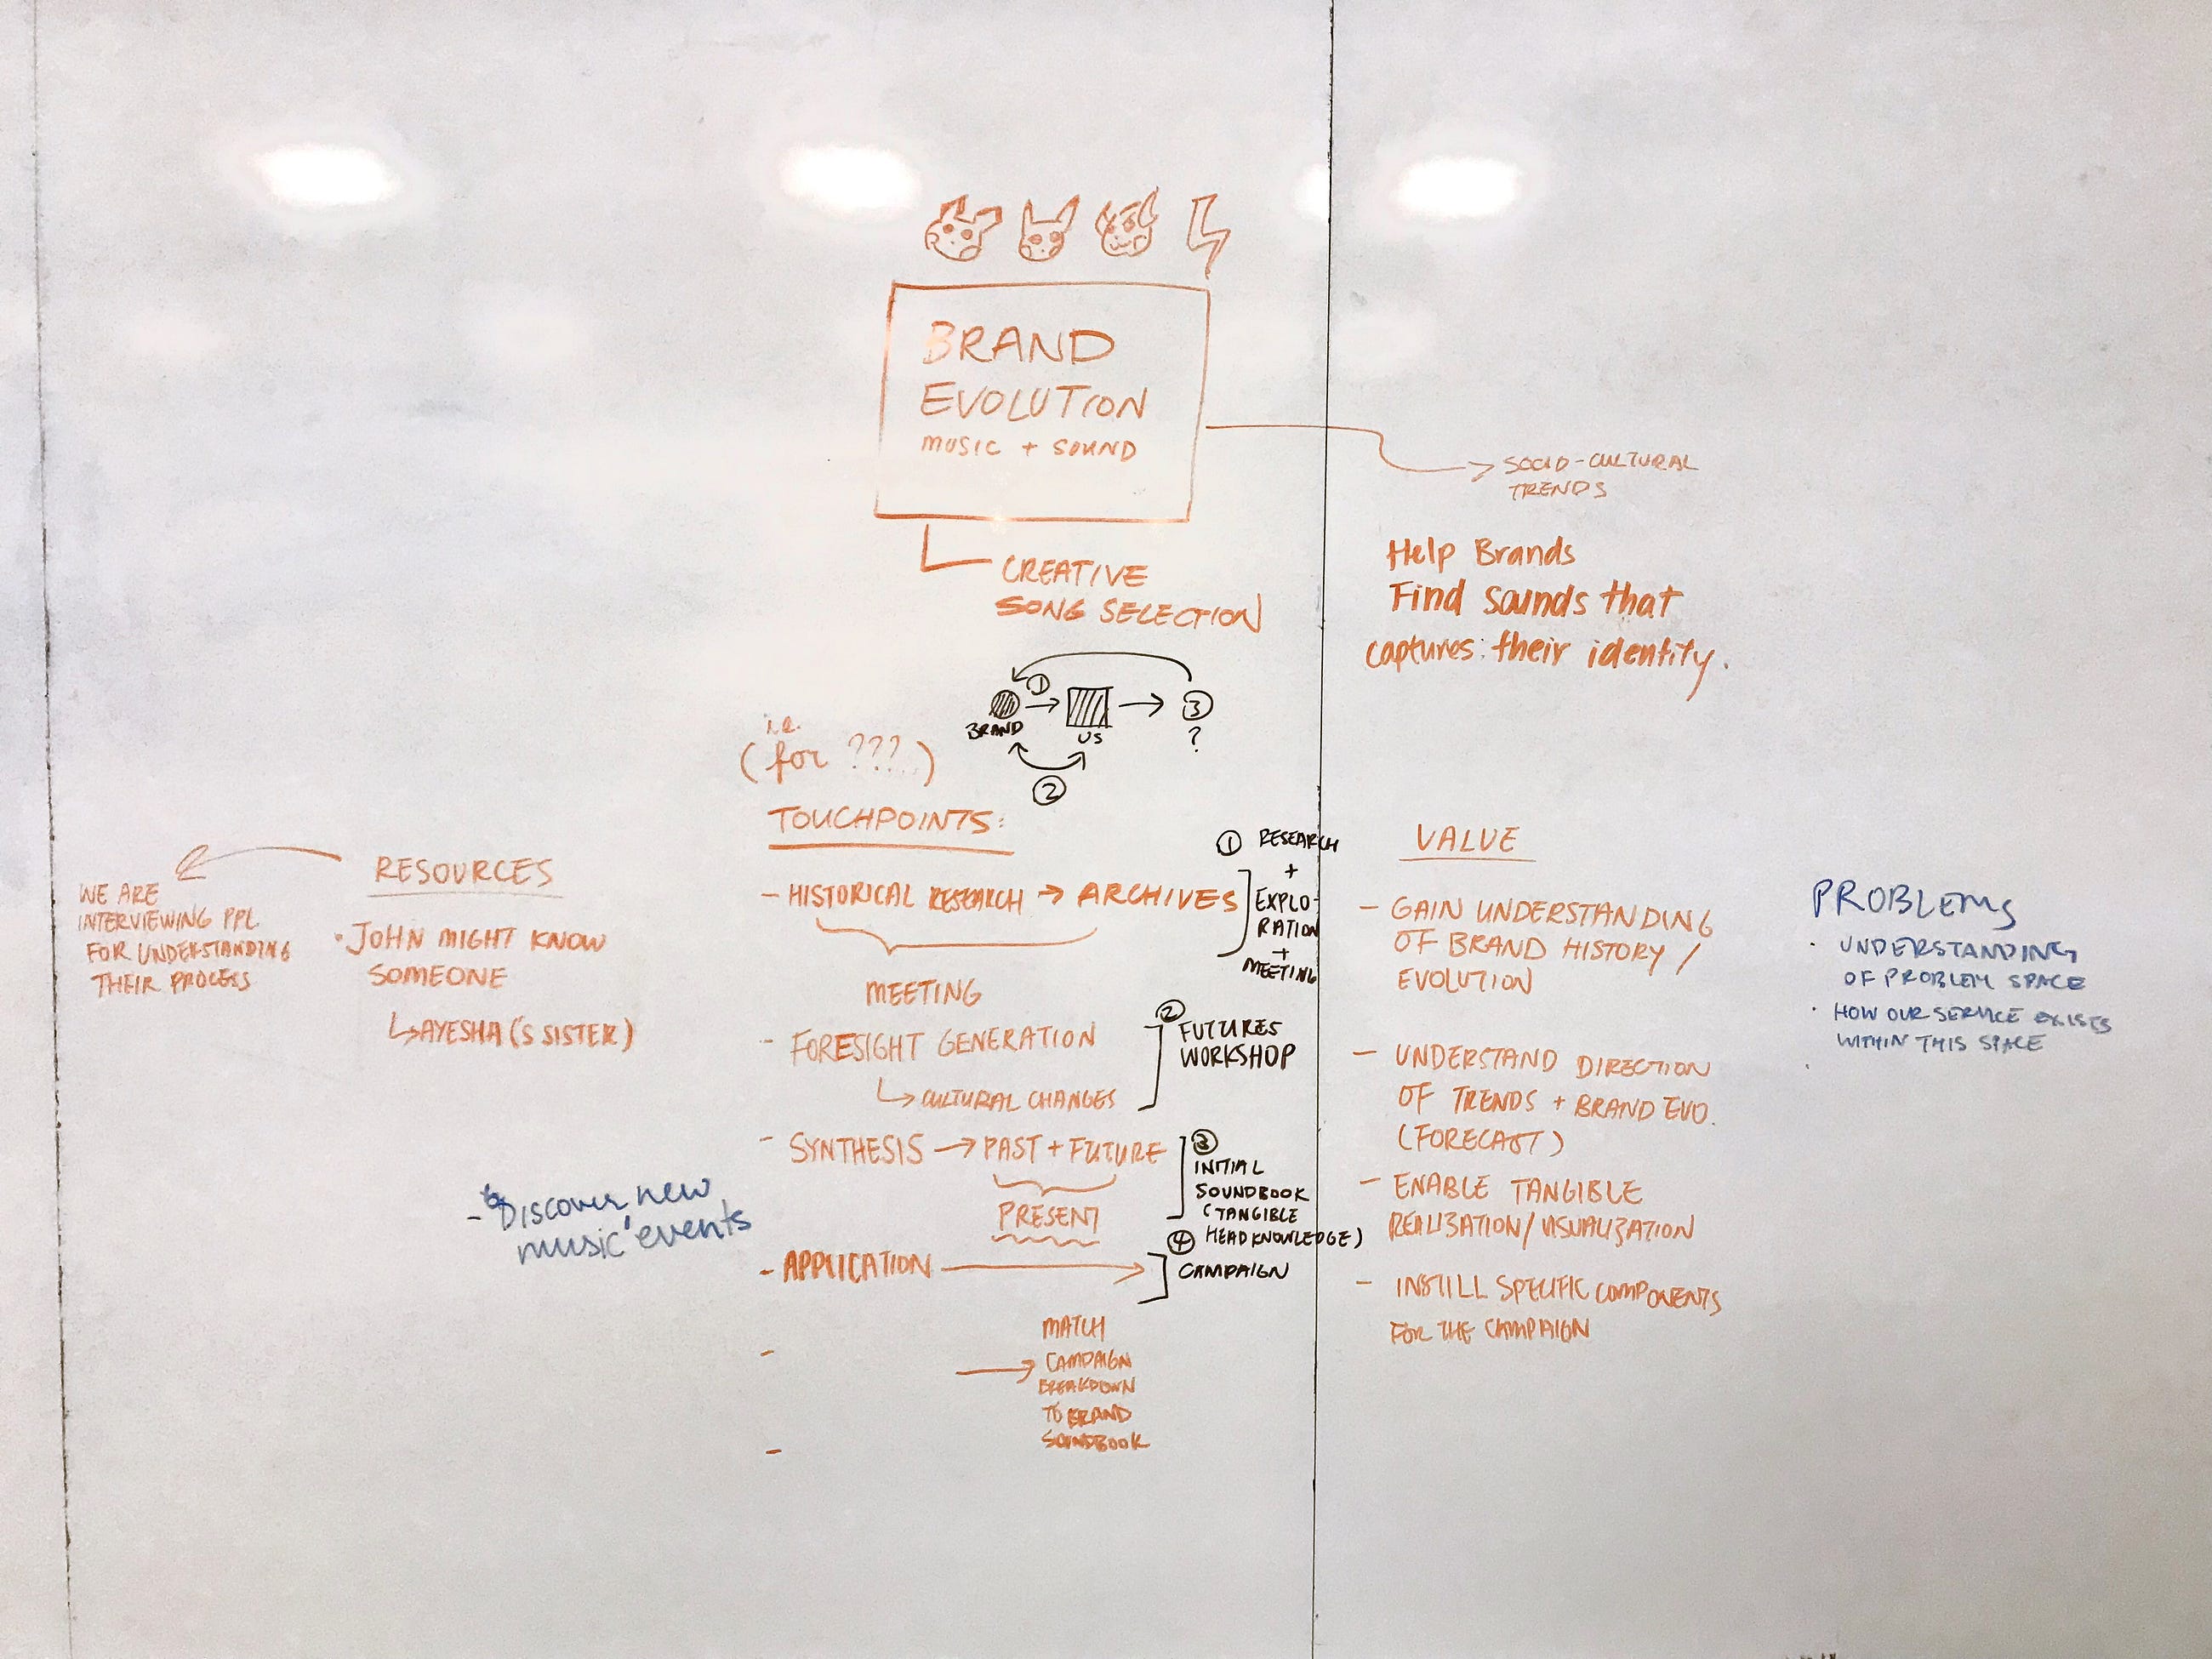 BRAND
EVOLUTION
MUSIC + SOUND
SOCIO-CULTURAL
TRENDS
CREATIVE
SONG SELECTION
Help Brands
Find sounds that
captures their identity.
1
BRAND
US
3
?
2
i.e.
(for ???...)
TOUCHPOINTS:
- HISTORICAL RESEARCH → ARCHIVES
MEETING
- FORESIGHT GENERATION
↳ CULTURAL CHANGES
- SYNTHESIS → PAST + FUTURE
PRESENT
- APPLICATION →
-
→ MATCH
CAMPAIGN
BREAKDOWN
TO BRAND
SOUNDBOOK
-
① RESEARCH
+
EXPLO-
RATION
+
MEETING
②
FUTURES
WORKSHOP
③
INITIAL
SOUNDBOOK
(TANGIBLE
HEADKNOWLEDGE)
④
CAMPAIGN
RESOURCES
· JOHN MIGHT KNOW
SOMEONE
↳ AYESHA ('S SISTER)
WE ARE
INTERVIEWING PPL
FOR UNDERSTANDING
THEIR PROCESS
- Discover new
music events
VALUE
- GAIN UNDERSTANDING
OF BRAND HISTORY /
EVOLUTION
- UNDERSTAND DIRECTION
OF TRENDS + BRAND EVO.
(FORECAST)
- ENABLE TANGIBLE
REALIZATION/VISUALIZATION
- INSTILL SPECIFIC COMPONENTS
FOR THE CAMPAIGN
PROBLEMS
· UNDERSTANDING
OF PROBLEM SPACE
· HOW OUR SERVICE EXISTS
WITHIN THIS SPACE
·